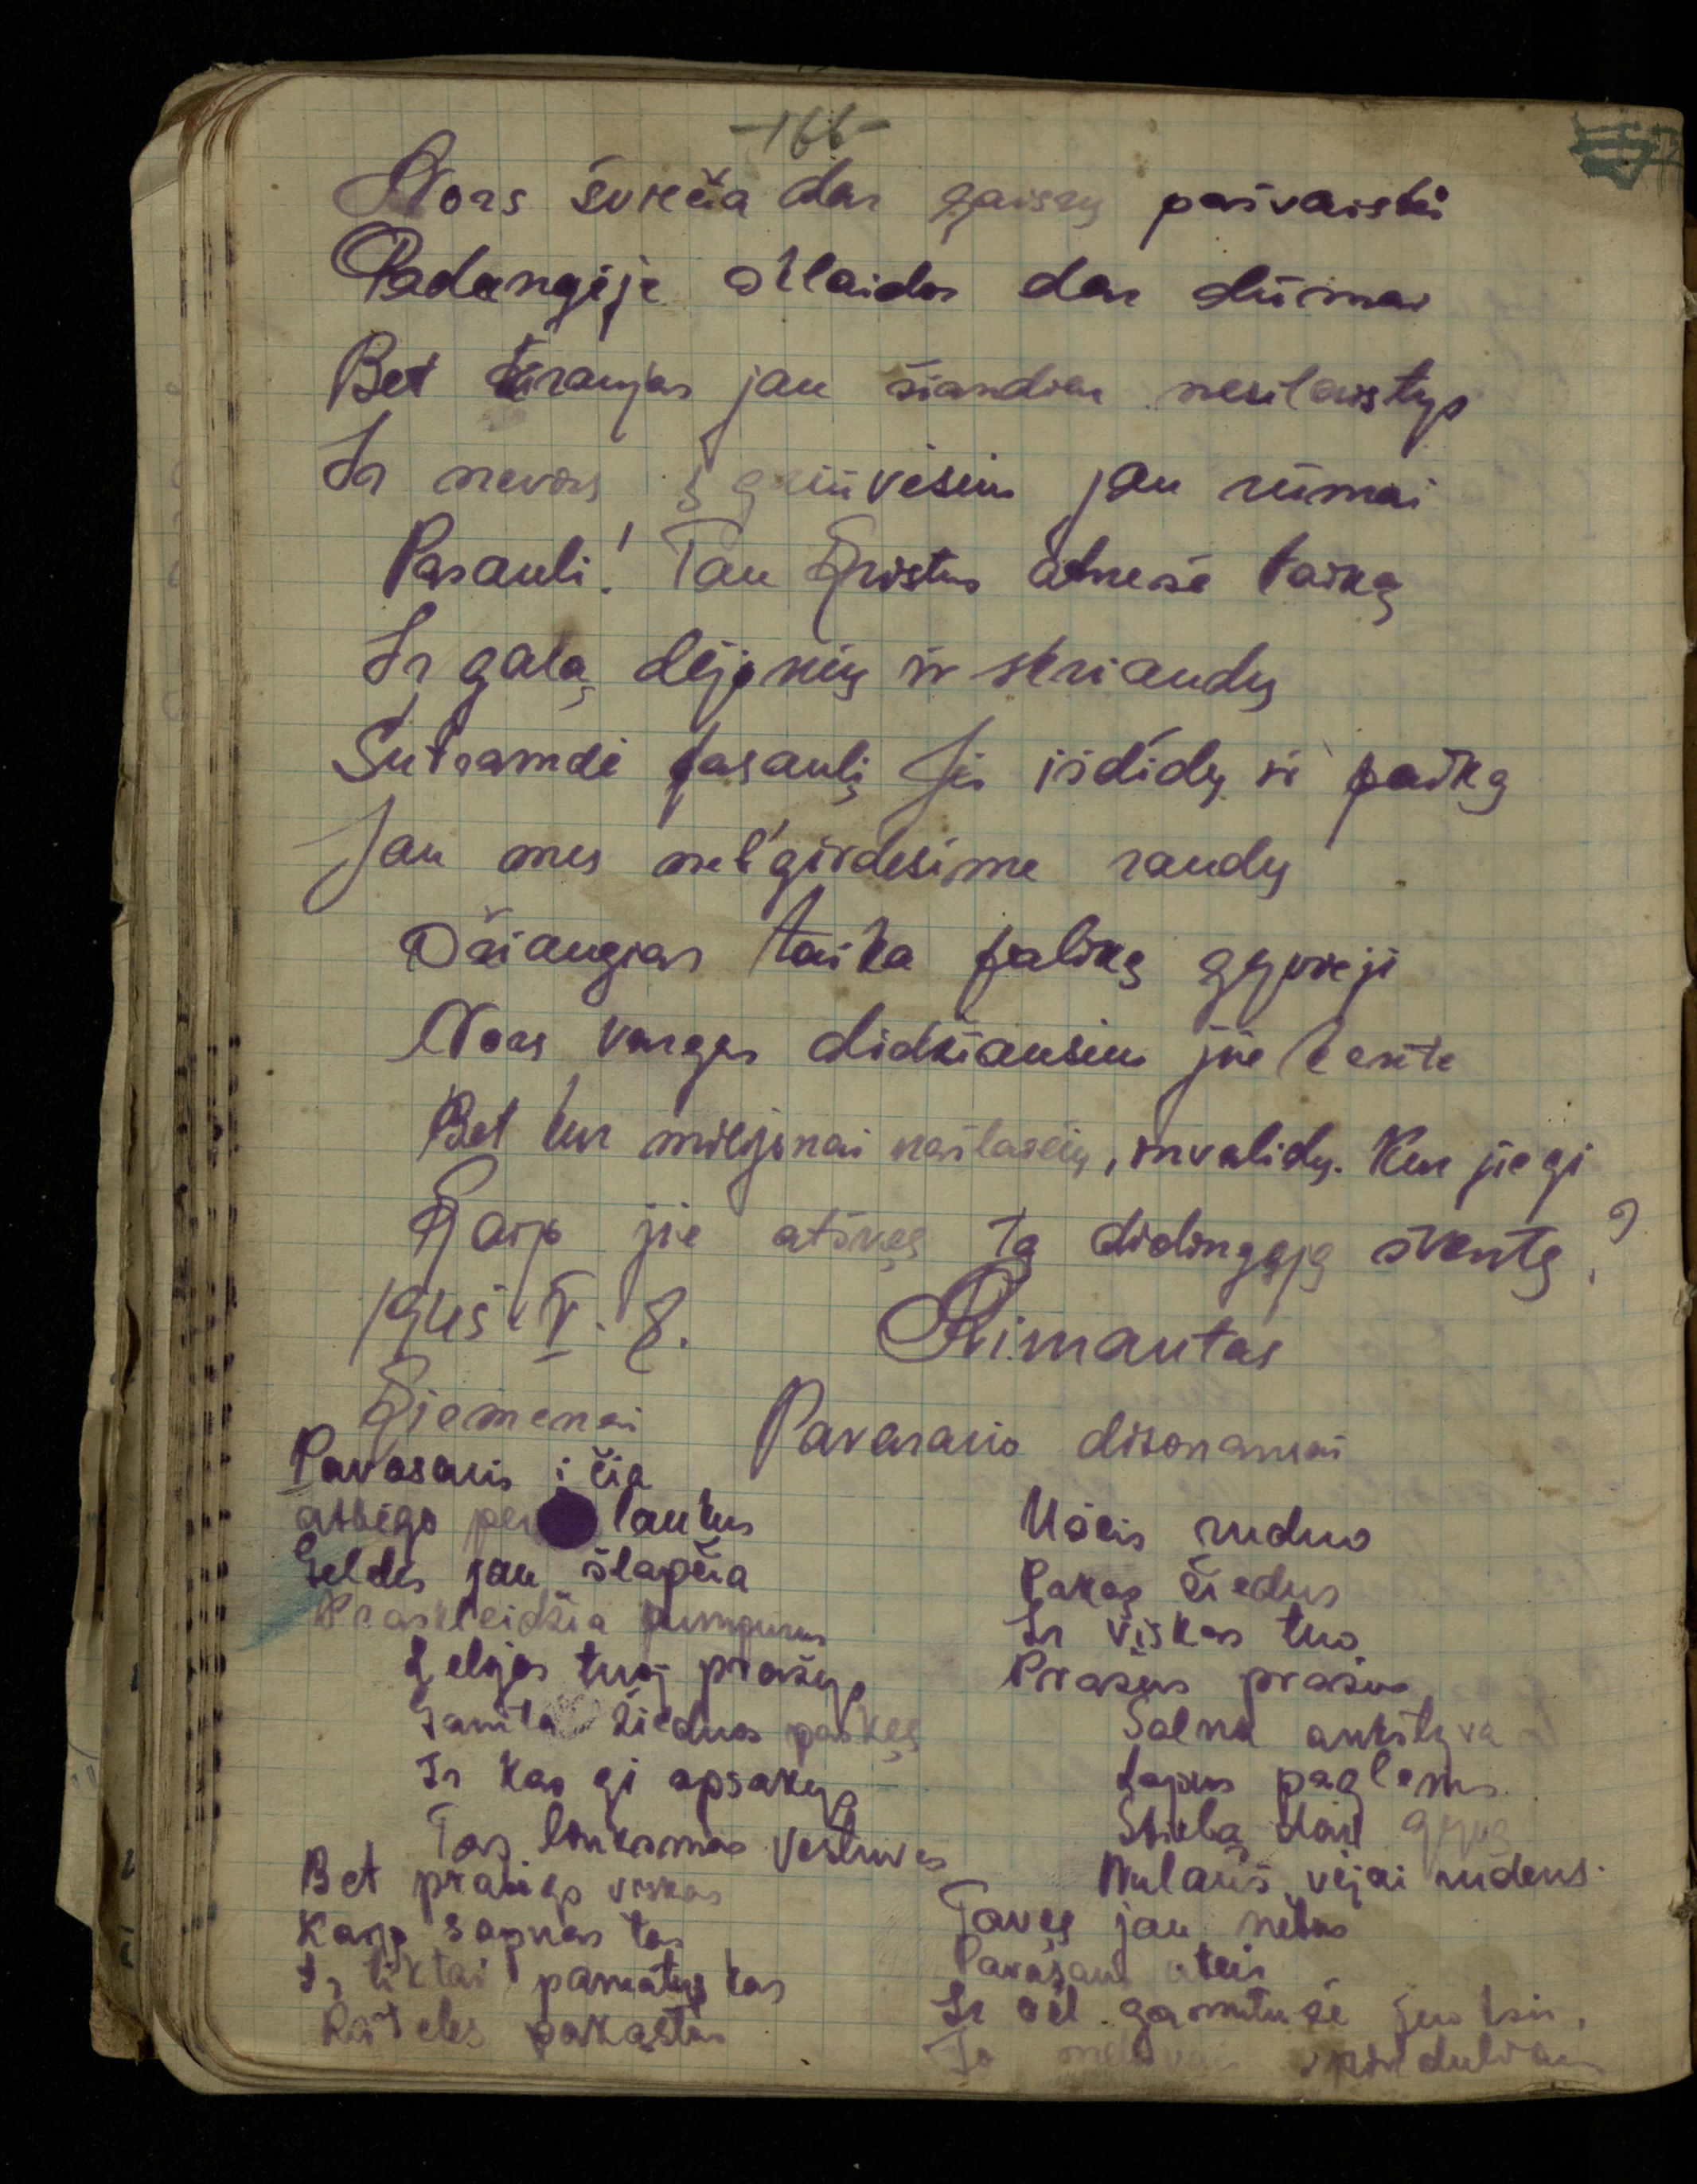 -166-
Nors šviečia dar gaisrų pašvaistė
Padangėje sklaidos dar dūmai
Bet kraujas jau šiandien nesilaistys
Ir nevirs į griūvėsius jau rūmai
Pasauli! Tau Kristus atnešė taiką
Ir galą dejonių ir skriaudų
Sutramdė pasaulį Jis išdidų ir paiką
Jau mes net'girdėsime raudų
Džiaugias taika palikę gyvieji
Nors vargus didžiausius jie kentė
Bet kur milijonai našlaičių, invalidų. Kur jiegi
Kaip jie atšvęs tą didingąją šventę?
1945.V.8. Rimantas
Kiemenai
Pavasario disonansai
Pavasaris i čia
atbėgo per laukus
Geldės jau šlapčia
Praskleidžia pumpurus
Lelijos tuoj pražys
Gamta žiedus paskęs
Ir kas gi apsakys
Tas linksmas vestuves
Bet prabėgo viskas
Kaip sapnas tas
Ir tiktai pamatys kas
Rašteles pakastas
Užeis ruduo
Pakąs žiedus
Ir viskas tuo
Pražus pražus
Šalna ankstyva
Lapus paglems
Stiebą dar gyvą
Nulauš vėjai rudens.
Tavęs jau nebus
Pavasaris ateis
Ir vėl gamtu že juoksis,
Jo spinduliais